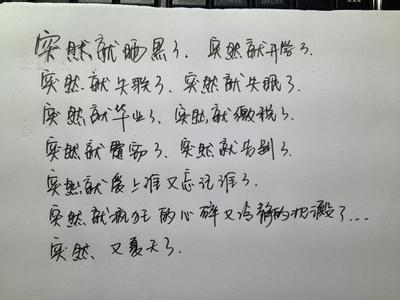 突然就晒黑了、突然就开学了、
突然就失联了、突然就失眠了、
突然就毕业了、突然就缴税了、
突然就震动了、突然就告别了、
突然就爱上谁又忘记谁了、
突然就疯狂的心碎又冷静的 了...
突然、又夏天了、